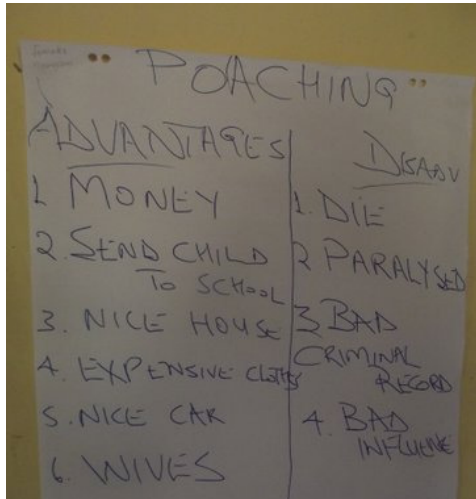 POACHING
ADVANTAGES
1 MONEY
2. SEND CHILD
TO SCHOOL
3. NICE HOUSE
4. EXPENSIVE CLOTHES
5. NICE CAR
6. WIVES
DISADV
1. DIE
2 PARALYSED
3 BAD
CRIMINAL
RECORD
4. BAD
INFLUENCE